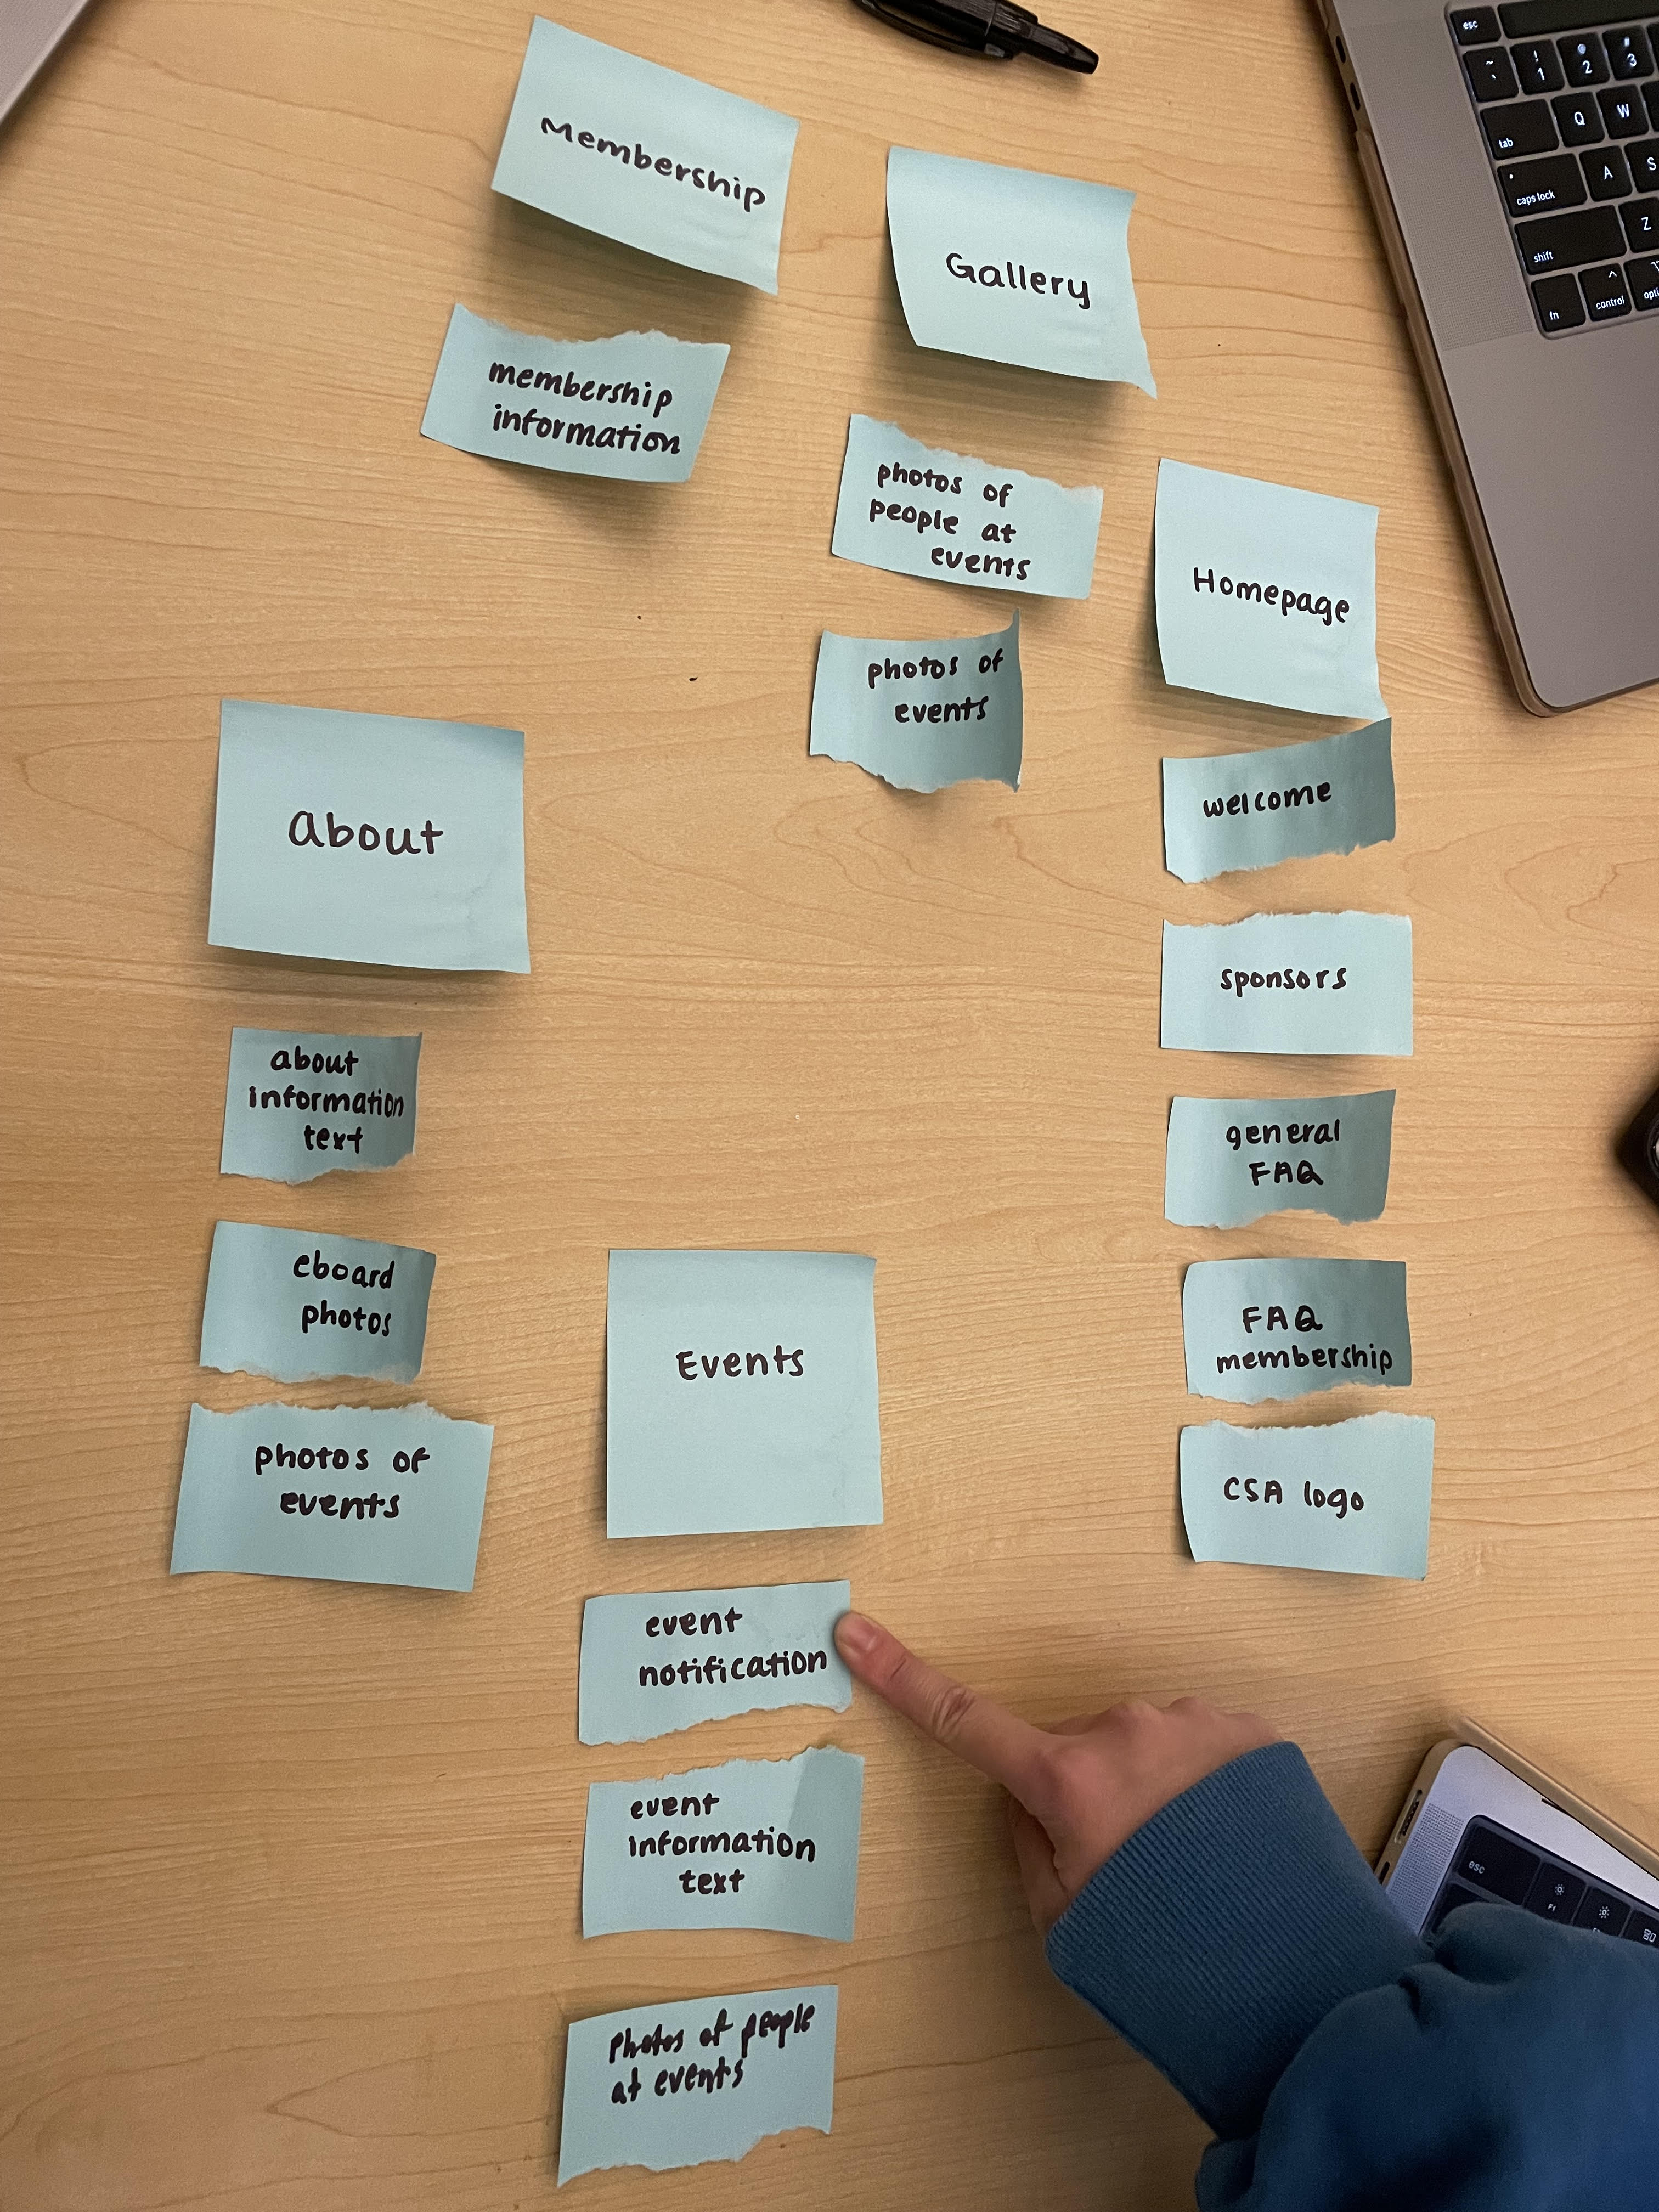 Membership
membership
information
Gallery
photos of
people at
events
photos of
events
Homepage
welcome
sponsors
general
FAQ
FAQ
membership
CSA logo
About
about
information
text
eboard
photos
photos of
events
Events
event
notification
event
information
text
Photos of people
at events
esc
~
`
!
1
@
2
#
3
tab
Q
W
caps lock
A
S
shift
Z
fn
control
esc
F1